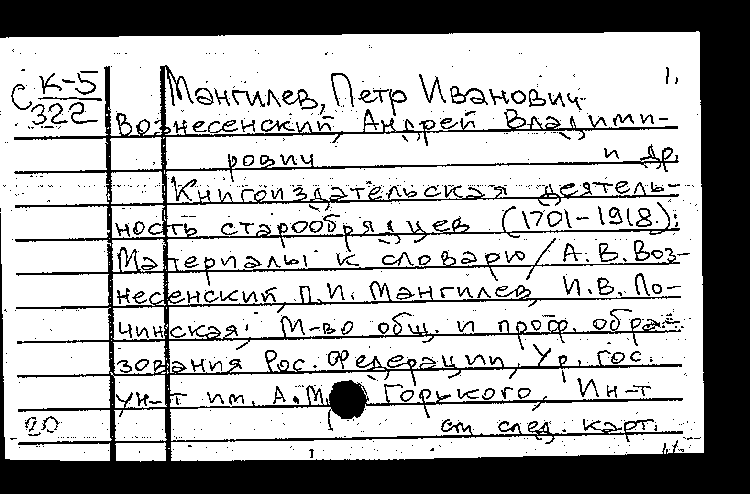 1.
С К-5
322
Мангилев, Петр Иванович
Вознесенский, Андрей Владими-
рович и др.
Книгоиздательская деятель-
ность старообрядцев (1701-1918):
Материалы к словарю / А.В. Воз-
несенский, П.И. Мангилев, И.В. По-
чинская; М-во общ. и проф. обра-
зования Рос. Федерации, Ур. гос.
ун-т им. А.М. Горького, Ин-т
20 см. след. карт.